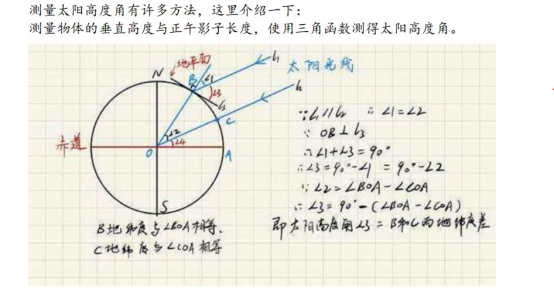 测量太阳高度角有许多方法，这里介绍一下：
测量物体的垂直高度与正午影子长度，使用三角函数测得太阳高度角。
地平面
N
B
∠1
l₁
太阳光线
∠3
l₃
l₂
C
∠2
赤道
O
∠4
A
S
∵ l₁∥l₂ ∴ ∠1=∠2
∵ OB⊥l₃
∴ ∠1+∠3=90°
∴ ∠3=90°-∠1=90°-∠2
∵ ∠2=∠BOA-∠COA
∴ ∠3=90°-(∠BOA-∠COA)
即太阳高度角∠3=B和C两地纬度差
B地纬度与∠BOA相等.
C地纬度与∠COA相等